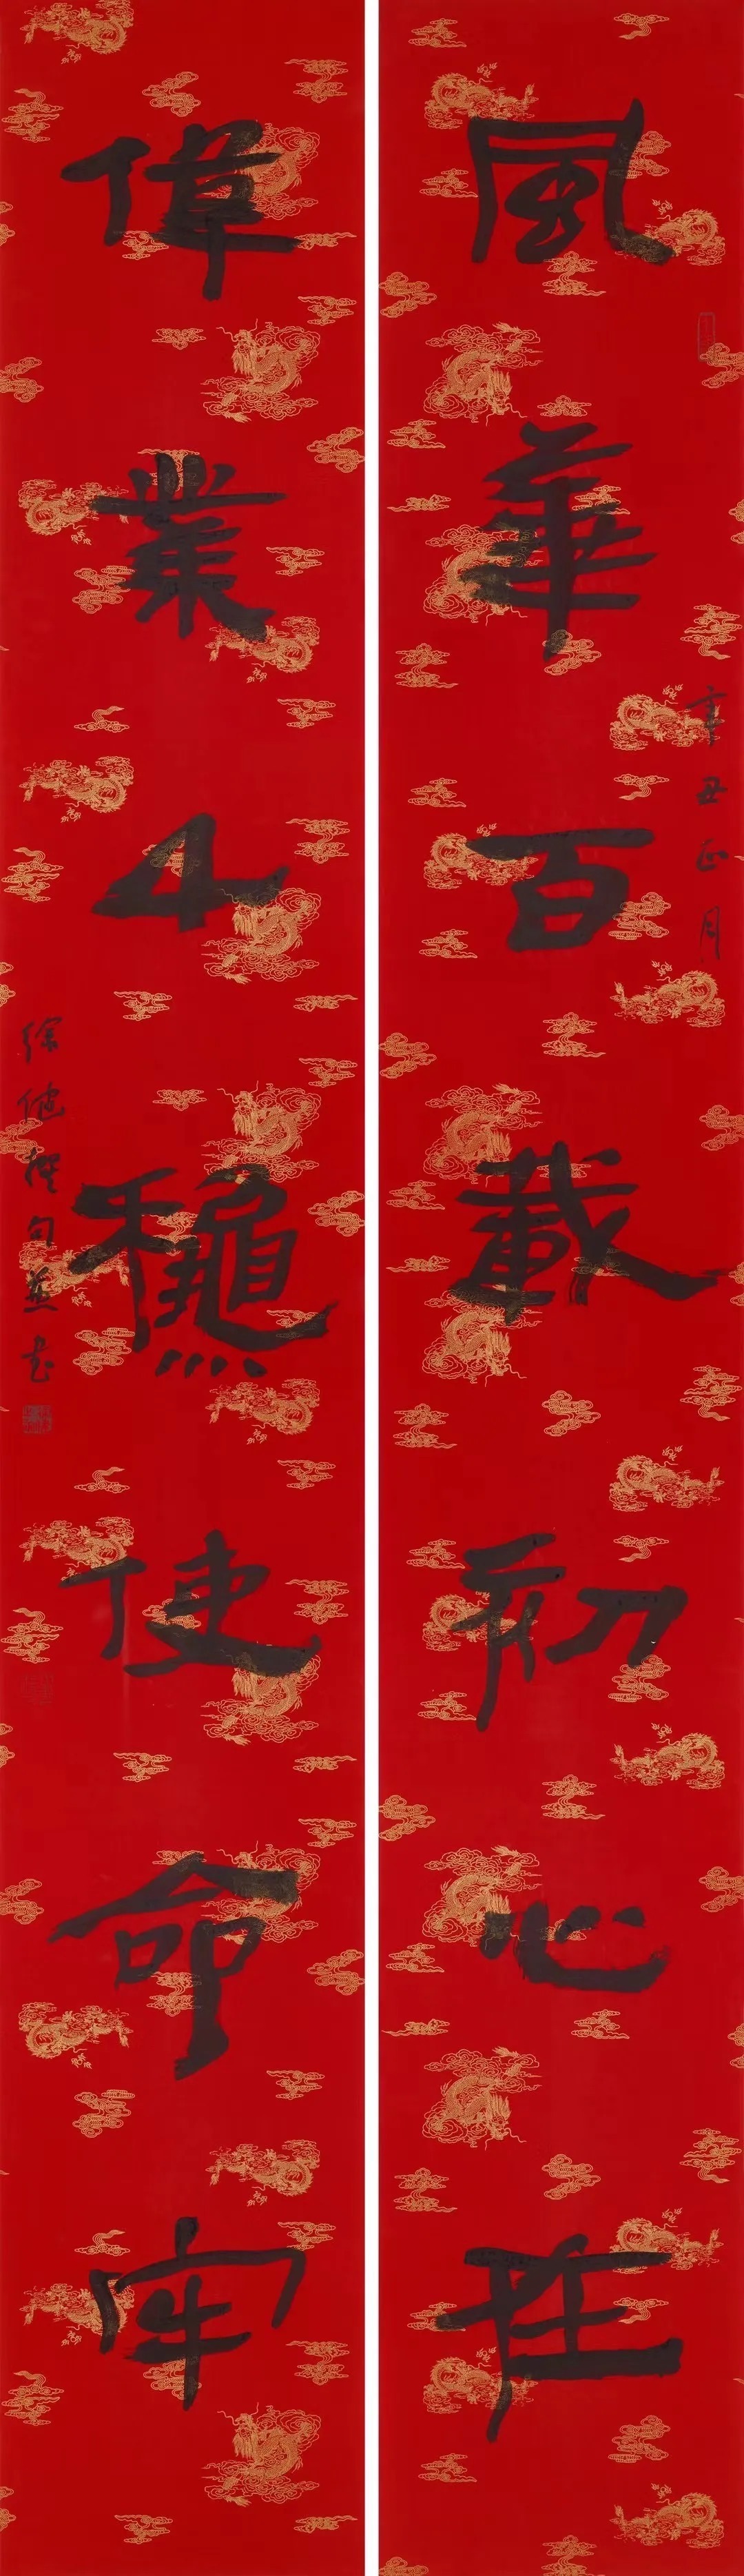 風華百載初心在
辛丑正月
偉業千龝使命牢
徐健撰句并书